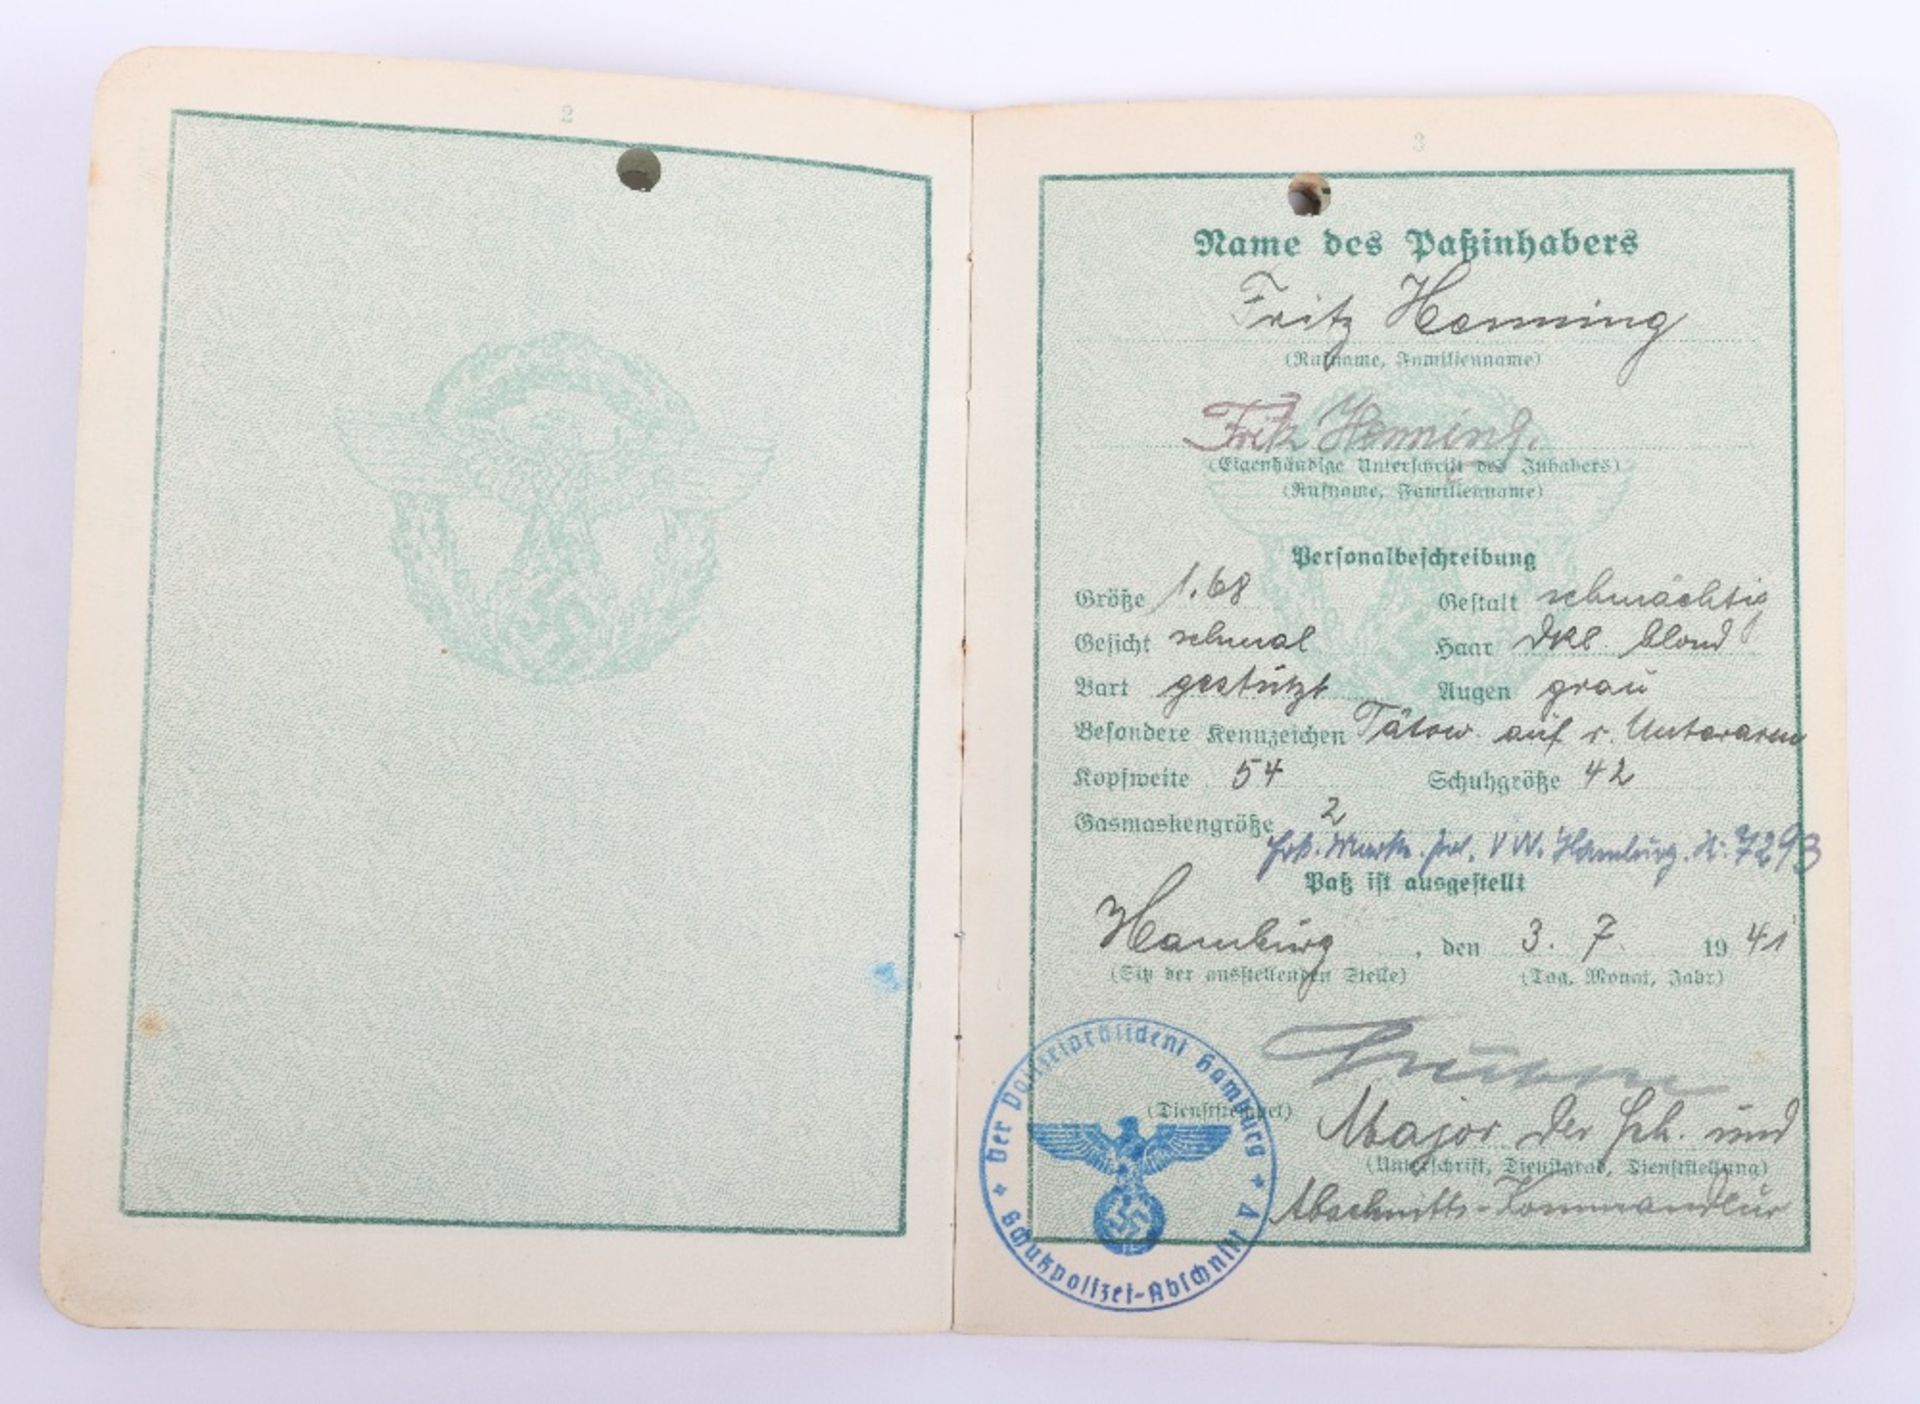 2
3
Name des Paßinhabers
Fritz Henning
(Rufname, Familienname)
Fritz Henning.
(Eigenhändige Unterschrift des Inhabers)
(Rufname, Familienname)
Personalbeschreibung
Größe 1.68 Gestalt schmächtig
Gesicht schmal Haar dkl. blond
Bart gestützt Augen grau
Besondere Kennzeichen Tätow. auf r. Unterarm
Kopfweite 54 Schuhgröße 42
Gasmaskengröße 2
Hamburg. 7293
Paß ist ausgestellt
Hamburg, den 3. 7. 1941
(Sitz der ausstellenden Stelle) (Tag, Monat, Jahr)
(Dienststempel)
Major der Sch. und
(Unterschrift, Dienstgrad, Dienststellung)
Abschnitts-Kommandeur
Der Polizeipräsident Hamburg
Schutzpolizei-Abschnitt A